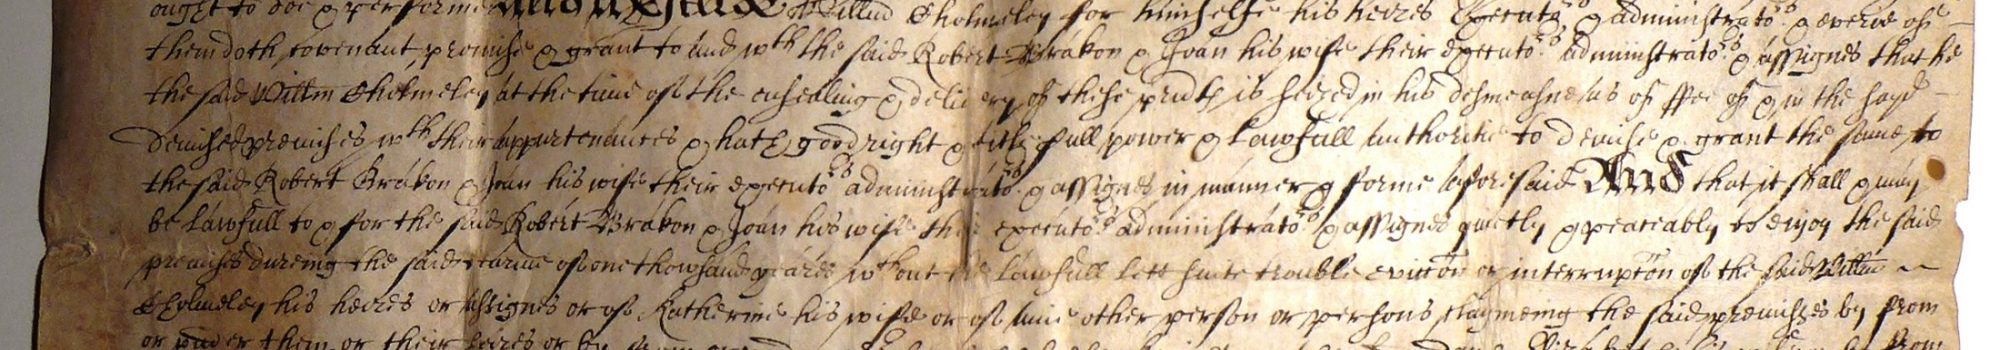 ought to doe & performe And the said Willm Cholmeley for himselfe his heires Executors & administrators & everie of
them doth covenant, promise & grant to and wth the said Robert Brakon & Joan his wife their executors administrators & assignes that he
the said Willm Cholmeley at the time of the ensealing & delivery of these prnts is seized in his desmeasne as of ffee of & in the sayd
demised premises wth their appurtenances & hath good right & title full power & lawfull authoritie to demise & grant the same to
the said Robert Brakon & Joan his wife their executors administrators & assignes in manner & forme aforesaid And that it shall & may
be lawfull to & for the said Robert Brakon & Joan his wife their executors administrators & assignes quietly & peaceably to enjoy the said
premises dureing the said tearme of one thowsand yeares wthout the lawfull lett suite trouble evicton or interrupton of the said Willm
Cholmeley his heires or assignes or of Katherine his wife or of anie other person or persons claymeing the said premisses by from
or under them or their heires or by from